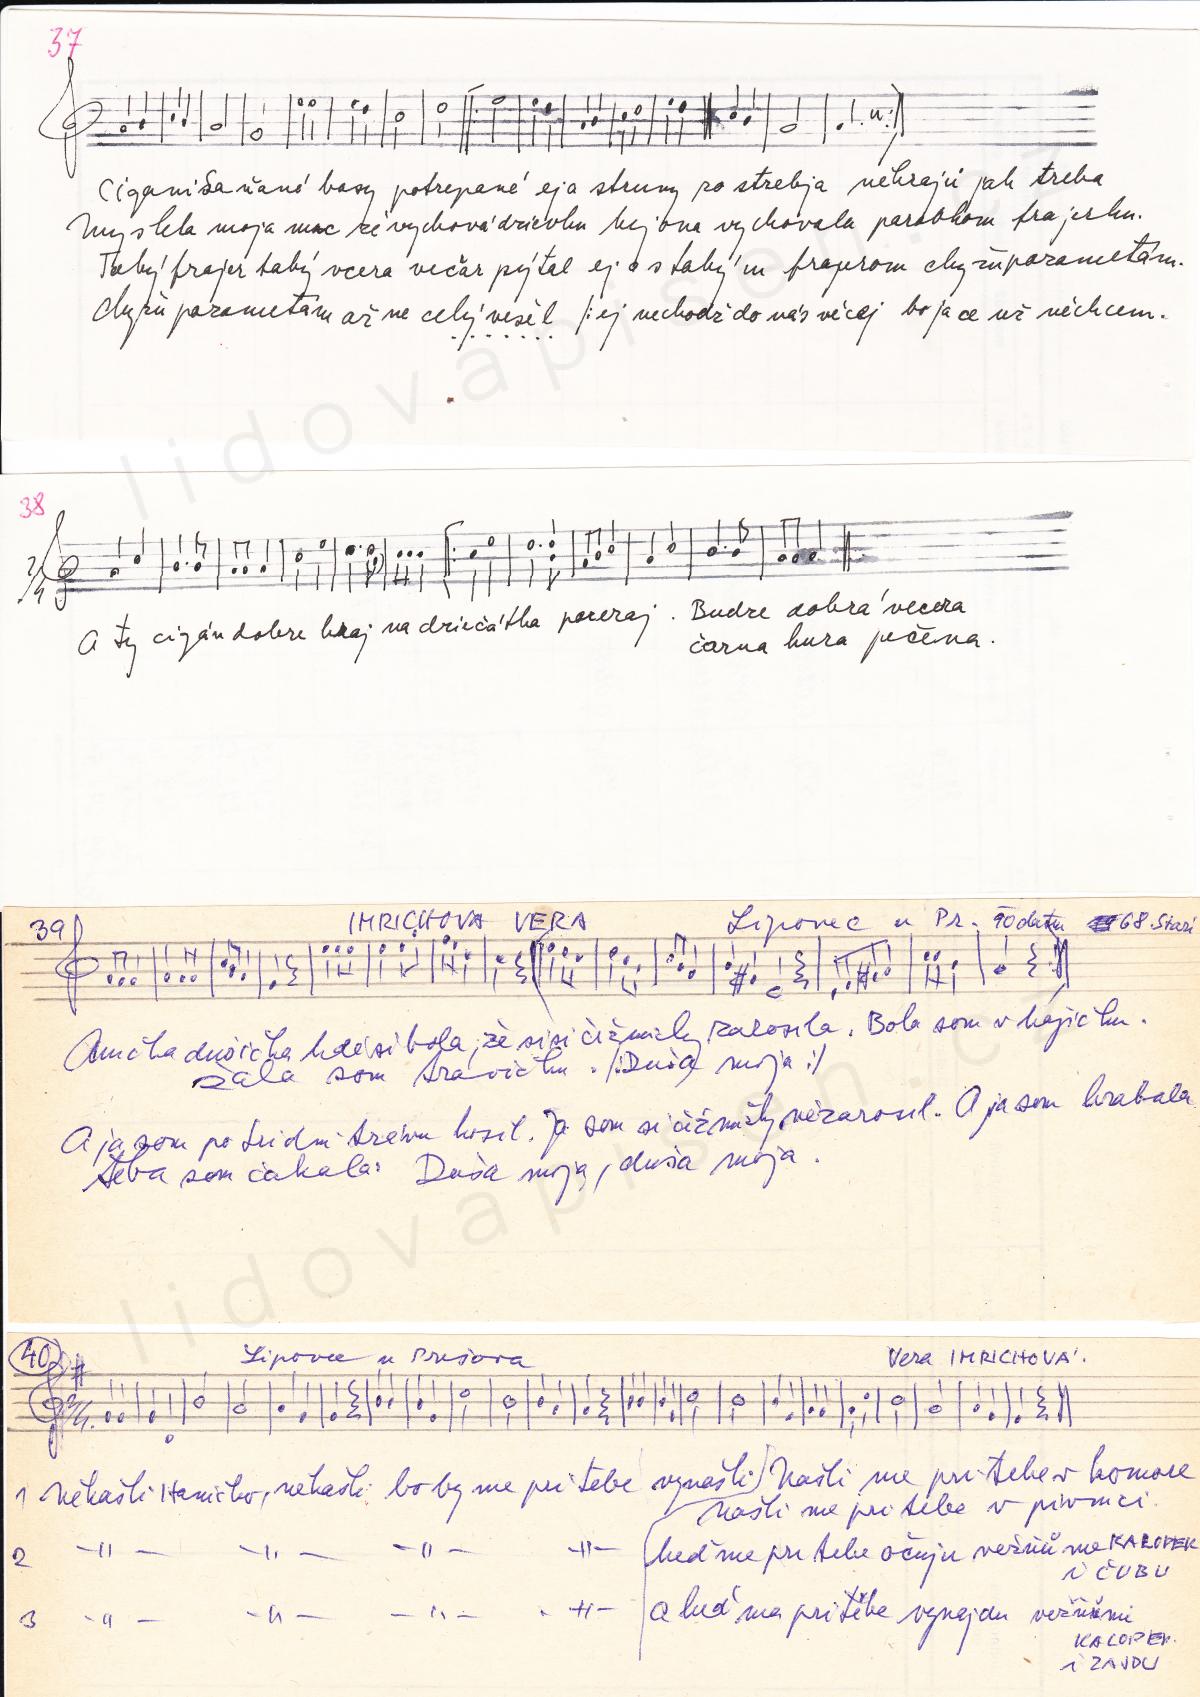 37
Ciganiša ňané basy potrepané eja struny zo strebja něhrajú jak treba
myslela moja mac že vychová dzievku hej ona vychovala parobkom frajerku.
Taký frajer taký včera večár pýtal ej s takým frajerom chyžu pozametám.
chyžu pozametám až ne celý vesel /: ej nechodź do nás věcej bo ja ce už něchcem.
38
2/4
A ty cigán dobre hraj na dziečátka pozeraj. Budze dobrá vecera
čarna kura pečena.
39 IMRICHOVA VERA Lipovec u Pr. 68. Stari
Anička dušička kdesi bola, že si si čižmičky zarosila. Bola som v hájičku.
žala som travičku. /: Duša moja :/
A ja som po tri dni trávu kosil. Ja som si čižmičky nězarosil. A ja som hrabala
těba som čakala: Duša moja, duša moja.
40 Lipovce u Prešova Vera IMRICHOVÁ.
1 Někašli Haničko, někašli bo by me pri tebe vynašli) Našli me pri tebe v komore
Našli me pri tebe v pivnici.
2 -"- -"- -"- -"- keď me pri tebe očuju vežňu me KALOPEK
i ČUBU
3 -"- -"- -"- -"- A keď ma pri těbe vynajdu vežňu mi
KALOPEK
i ZAJDU
lidovapisen.cz
lidovapisen.cz